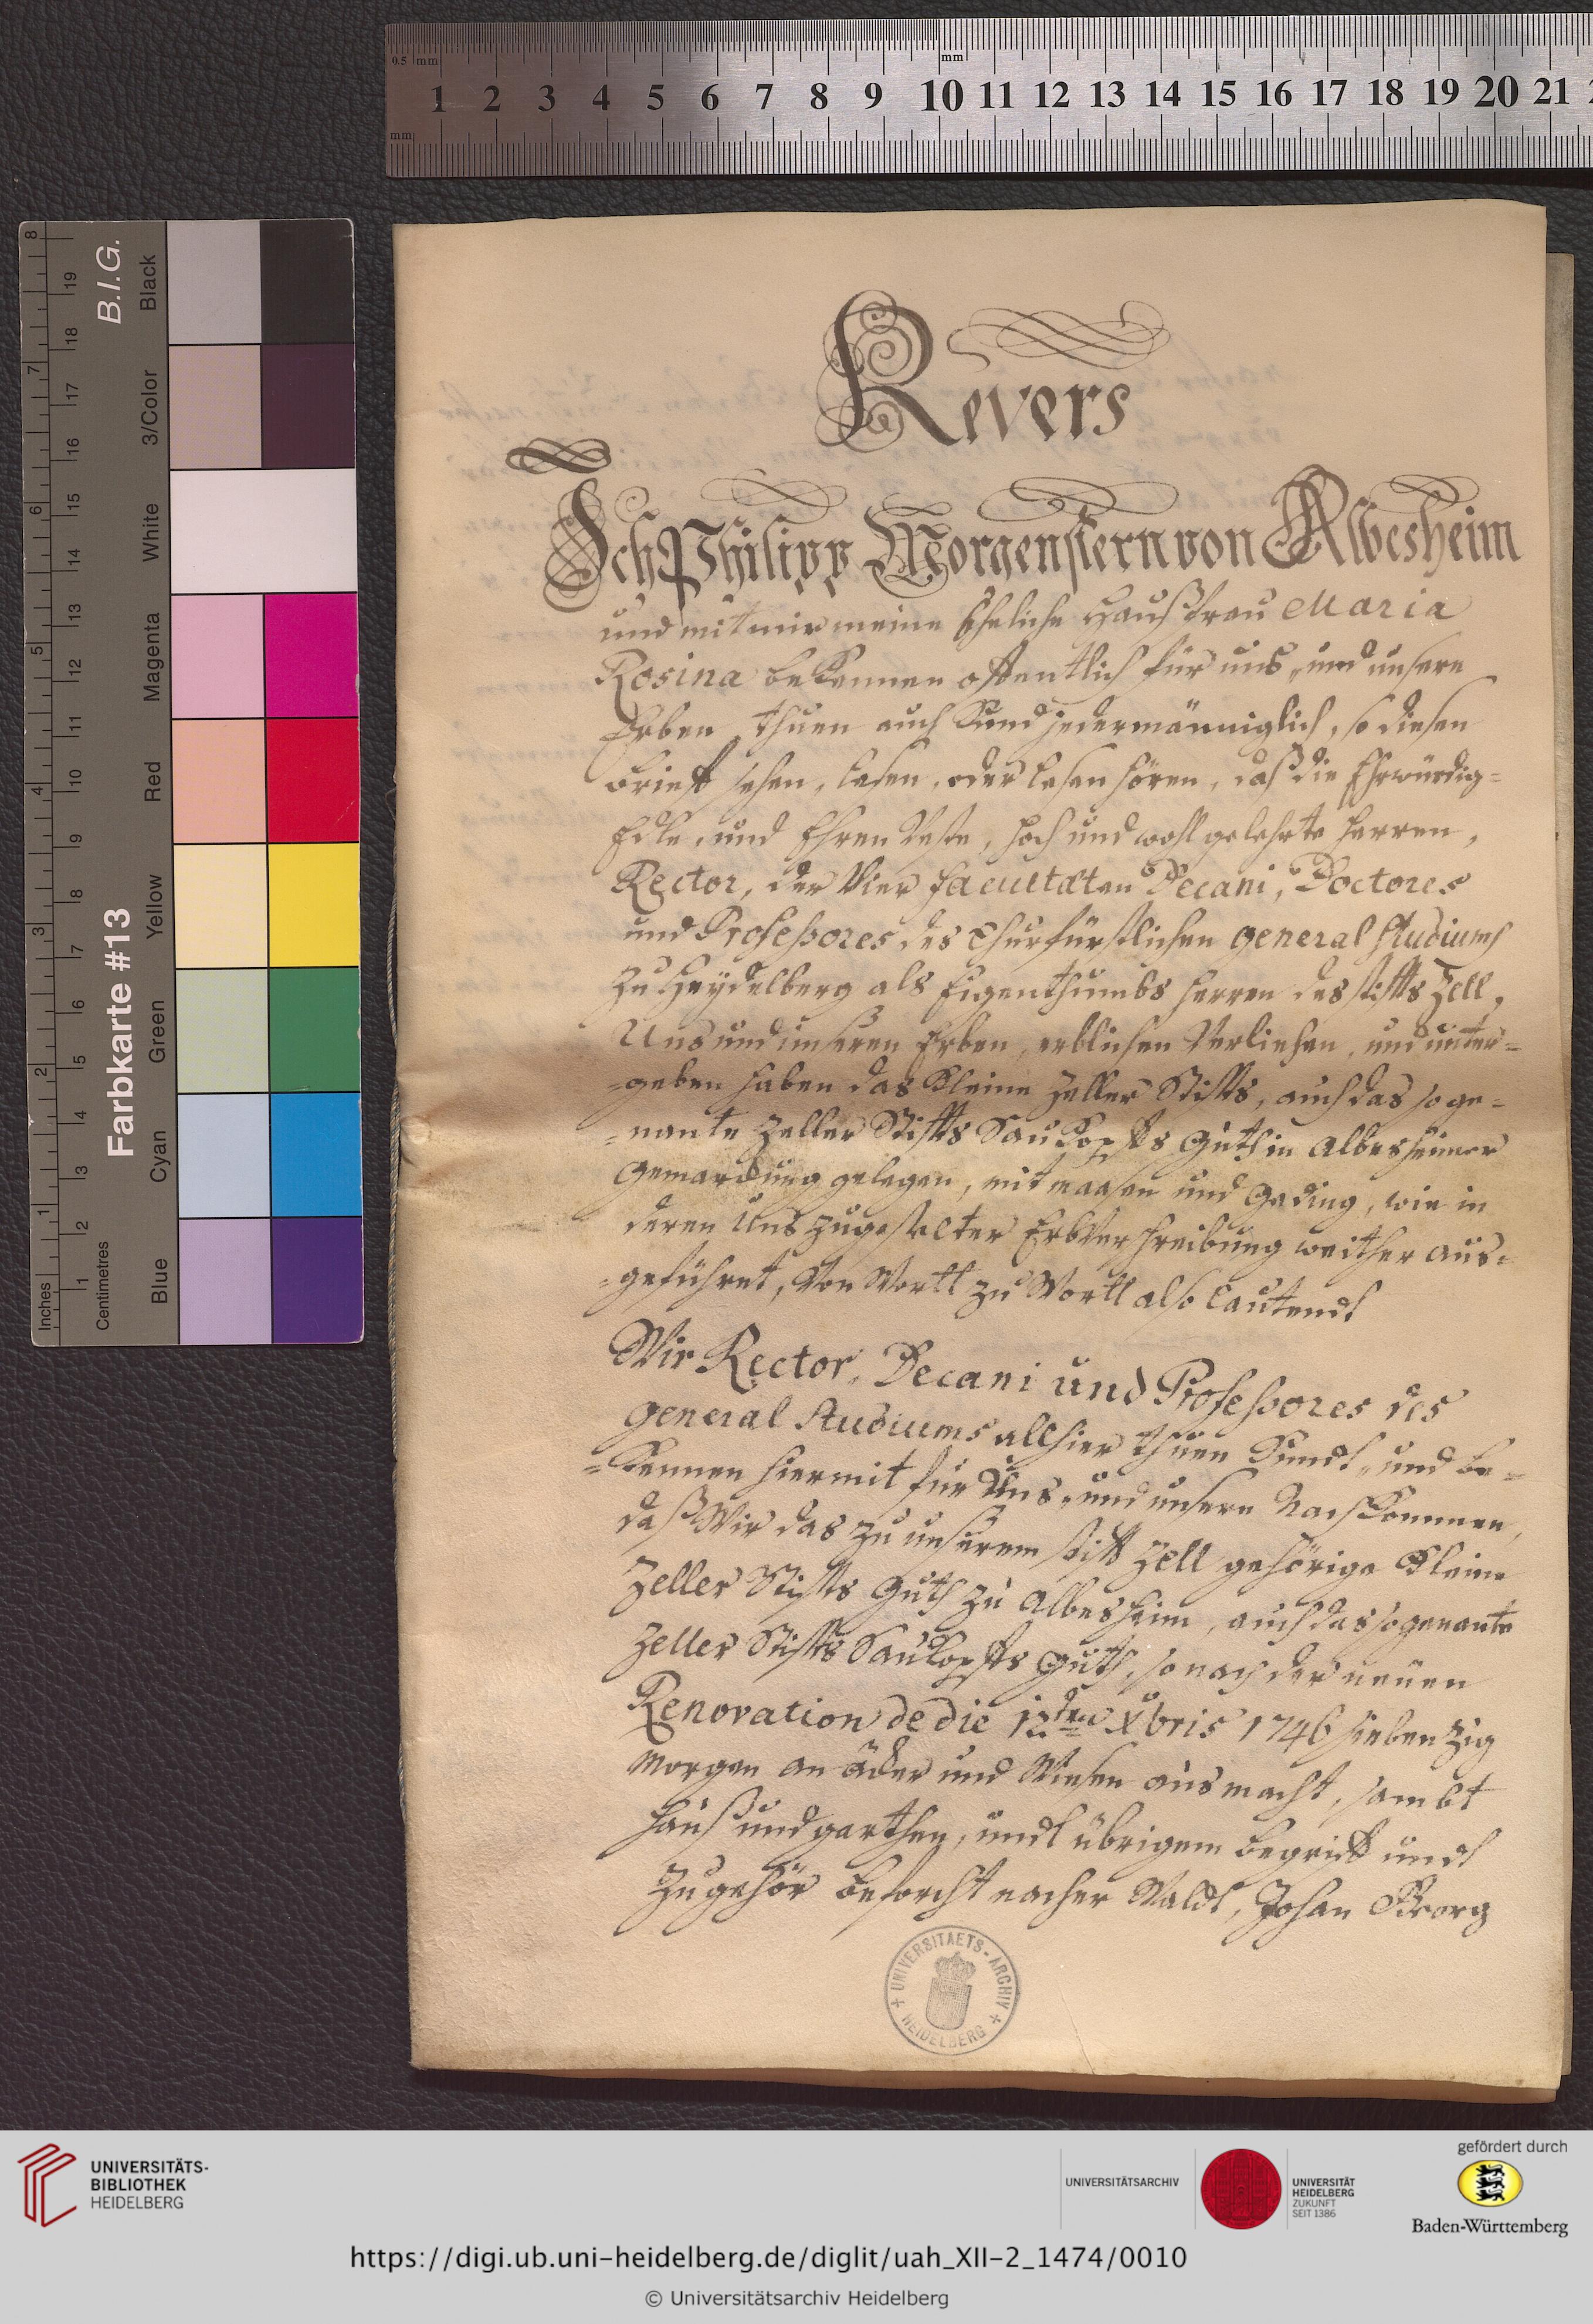 Revers
Ich Philipp Morgenstern von Albesheim
und mit mir meine Eheliche Haußfrau Maria
Rosina bekennen offentlich für uns, und unsere
Erben, thuen auch Kund jedermänniglich, so diesen
brieff sehen, lesen, oder lesen hören, daß die Ehrwürdig=
Edle, und Ehren Veste, hoch und wohl gelehrte Herren,
Rector, der Vier Facultäten Decani, Doctores
und Professores des Churfürstlichen general Studiums
zu Heÿdelberg als Eigenthumbs Herren des stiffts Zell,
Uns und unseren Erben, erblichen Verliehen, und unter=
=geben haben das Kleine Zeller Stiffts, auch das soge=
=nante Zeller Stiffts Saukopffs Guth in Albesheimer
Gemarckung gelegen, mit maasen und Geding, wie in
deren Uns zugestelter Erbverschreibung weither aus=
=geführet, Von Wortt zu Wortt also lautendt
Wir Rector, Decani und Professores des
general Studiums allhier thuen Kundt, und be=
=Kennen hiermit für Uns, und unsere Nachkommen,
daß Wir das zu unserem stifft Zell gehörige Kleine
Zeller Stiffts Guth zu Albesheim, auch das sogenante
Zeller Stiffts Saukopffs Guth, so nach der neuen
Renovation de die 12ten Xbris 1746 siebenzig
Morgen an äcker und Wiesen ausmacht, sambt
Hauß und garthen, undt übrigem begriff undt
Zugehör beforcht nacher Waldt, Johan Georg
UNIVERSITAETS-ARCHIV
HEIDELBERG
0.5 mm
mm
mm
1 2 3 4 5 6 7 8 9 10 11 12 13 14 15 16 17 18 19 20 21
Farbkarte #13
B.I.G.
Black
3/Color
White
Magenta
Red
Yellow
Green
Cyan
Blue
Inches
1 2 3 4 5 6 7 8
Centimetres
1 2 3 4 5 6 7 8 9 10 11 12 13 14 15 16 17 18 19
UNIVERSITÄTS-
BIBLIOTHEK
HEIDELBERG
UNIVERSITÄTSARCHIV
UNIVERSITÄT
HEIDELBERG
ZUKUNFT
SEIT 1386
gefördert durch
Baden-Württemberg
https://digi.ub.uni-heidelberg.de/diglit/uah_XII-2_1474/0010
© Universitätsarchiv Heidelberg